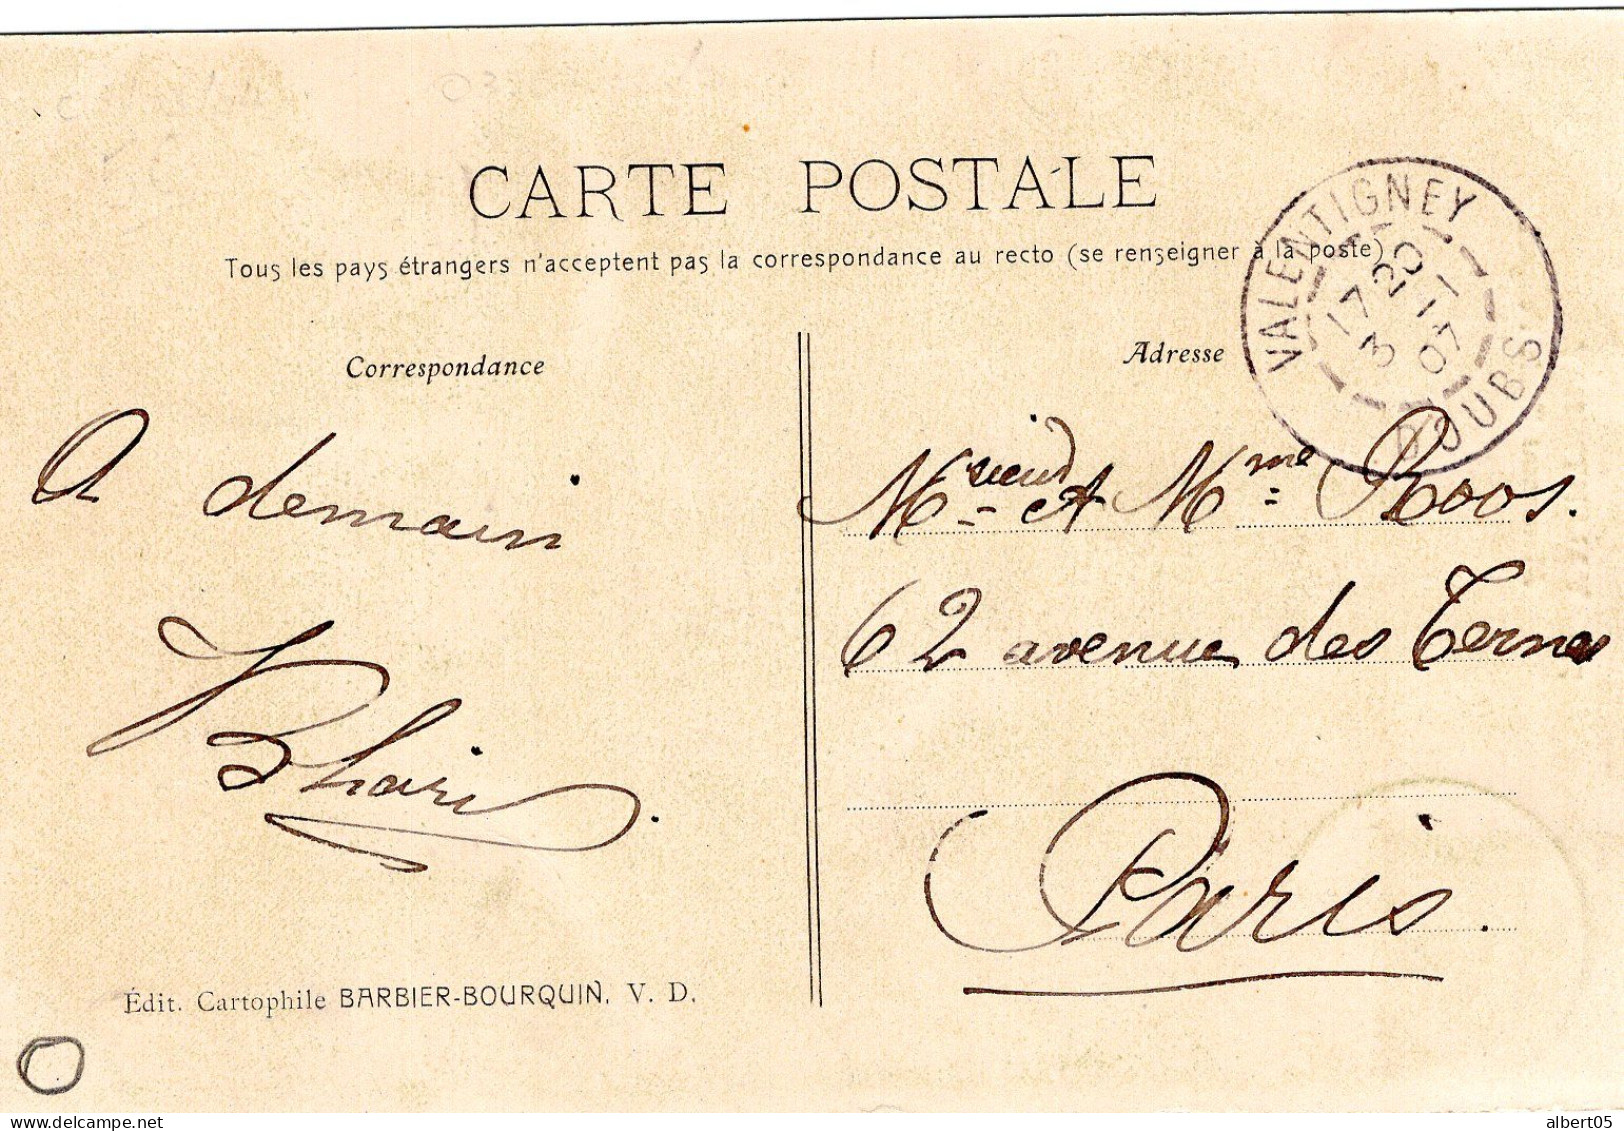 CARTE POSTALE
Tous les pays étrangers n'acceptent pas la correspondance au recto (se renseigner à la poste)
VALENTIGNEY
1720
3 -1
07
DOUBS
Correspondance
Adresse
A demain
Msieur et Mme Roos.
62 avenue des Ternes
Paris.
Édit. Cartophile BARBIER-BOURQUIN, V. D.
albert05